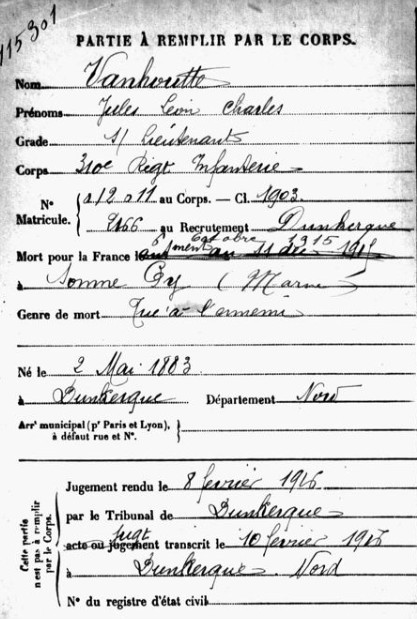 115301
PARTIE À REMPLIR PAR LE CORPS.
Nom Vanhoutte
Prénoms Jules Léon Charles
Grade S/ Lieutenant
Corps 310e Régt Infanterie
N° Matricule. 012011 au Corps. — Cl. 1903
2166 au Recrutement Dunkerque
6 Octobre 1915
Mort pour la France le
à Somme Py (Marne)
Genre de mort Tué à l'ennemi
Né le 2 Mai 1883
à Dunkerque Département Nord
Arrt municipal (pr Paris et Lyon),
à défaut rue et N°.
Cette partie n'est pas à remplir par le Corps.
Jugement rendu le 8 février 1916
par le Tribunal de Dunkerque
Jugt
acte ou jugement transcrit le 10 février 1916
à Dunkerque. Nord
N° du registre d'état civil